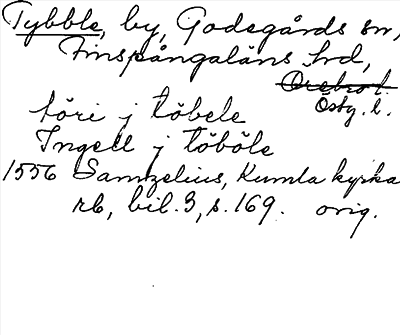 Tybble, by, Godegårds sn,
Finspångaläns hrd,
Örebro l.
Östg. l.
töri j töbele
Ingell j töböle
1556 Samzelius, Kumla kyrka
rb, bil. 3, s. 169. orig.